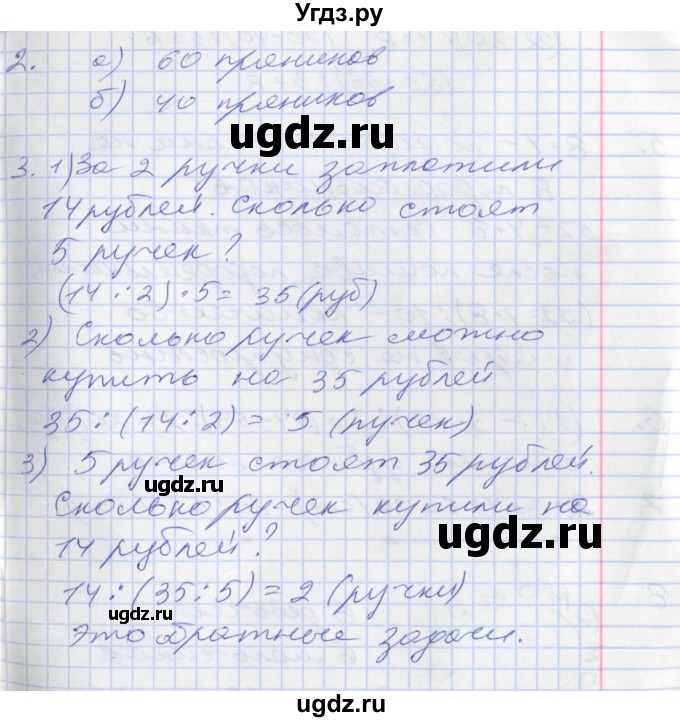 Угдз.ру
2. а) 60 пряников
б) 40 пряников
ugdz.ru
3. 1) За 2 ручки заплатили
14 рублей. Сколько стоят
5 ручек?
(14 : 2) · 5 = 35 (руб)
2) Сколько ручек можно
купить на 35 рублей
35 : (14 : 2) = 5 (ручек)
3) 5 ручек стоят 35 рублей.
ugdz.ru
Сколько ручек купили на
ugdz.ru
14 рублей?
14 : (35 : 5) = 2 (ручки)
ugdz.ru
Это обратные задачи.
ugdz.ru